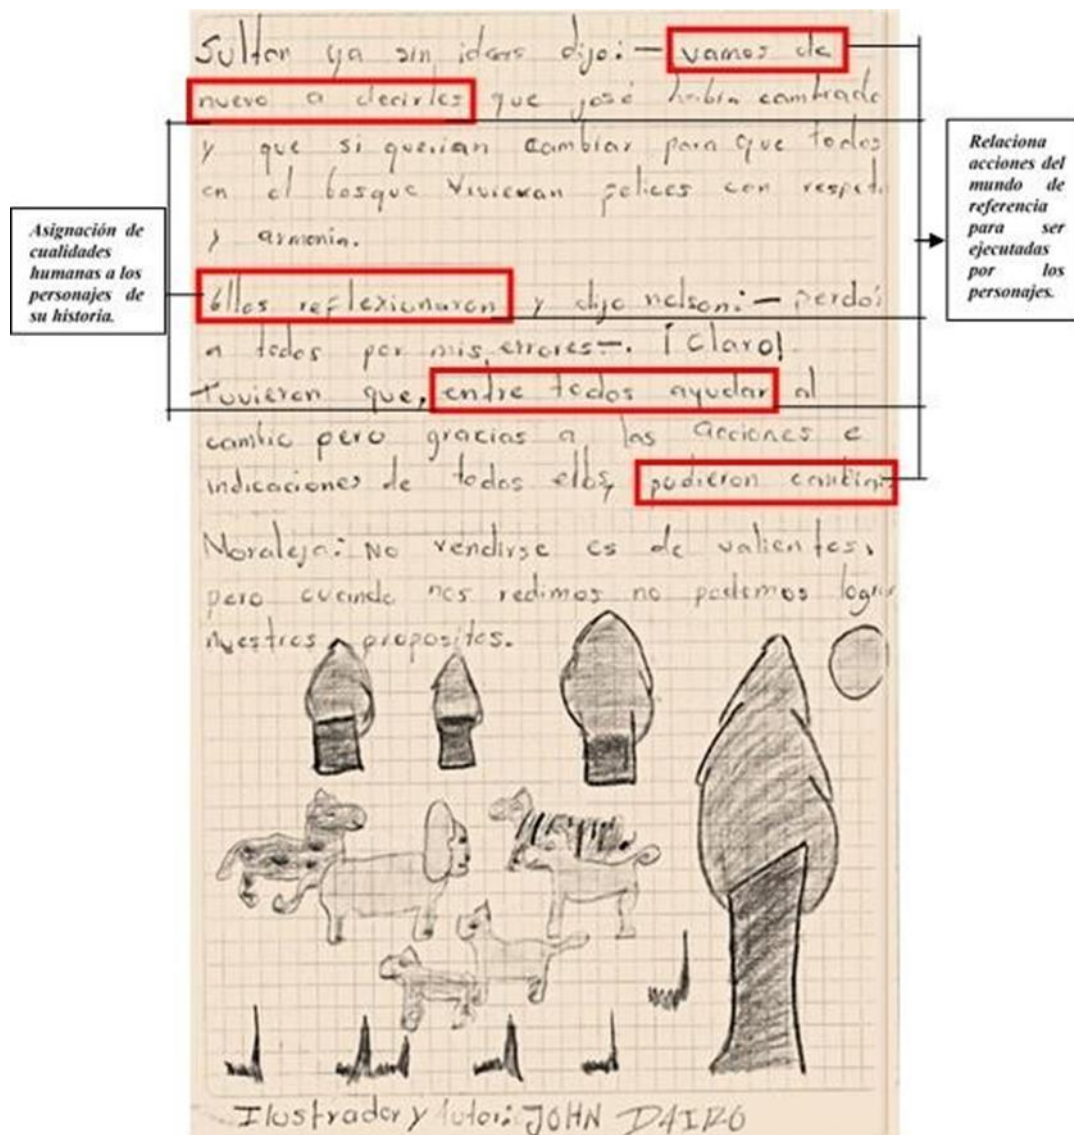 Sultan ya sin ideas dijo: — vamos de
nuevo a decirles que josé había cambiado
y que si querian cambiar para que todos
en el bosque vivieran felices con respeto
y armonia.
Ellos reflexionaron y dijo nelson: — perdón
a todos por mis errores —. ¡Claro!
Tuvieron que, entre todos ayudar al
cambio pero gracias a las acciones e
indicaciones de todos ellos, pudieron cambiar.
Moraleja: No rendirse es de valientes,
pero cuando nos redimos no podemos lograr
nuestros propositos.
Ilustrador y tutor: JOHN DAIRO
Asignación de
cualidades
humanas a los
personajes de
su historia.
Relaciona
acciones del
mundo de
referencia
para ser
ejecutadas
por los
personajes.